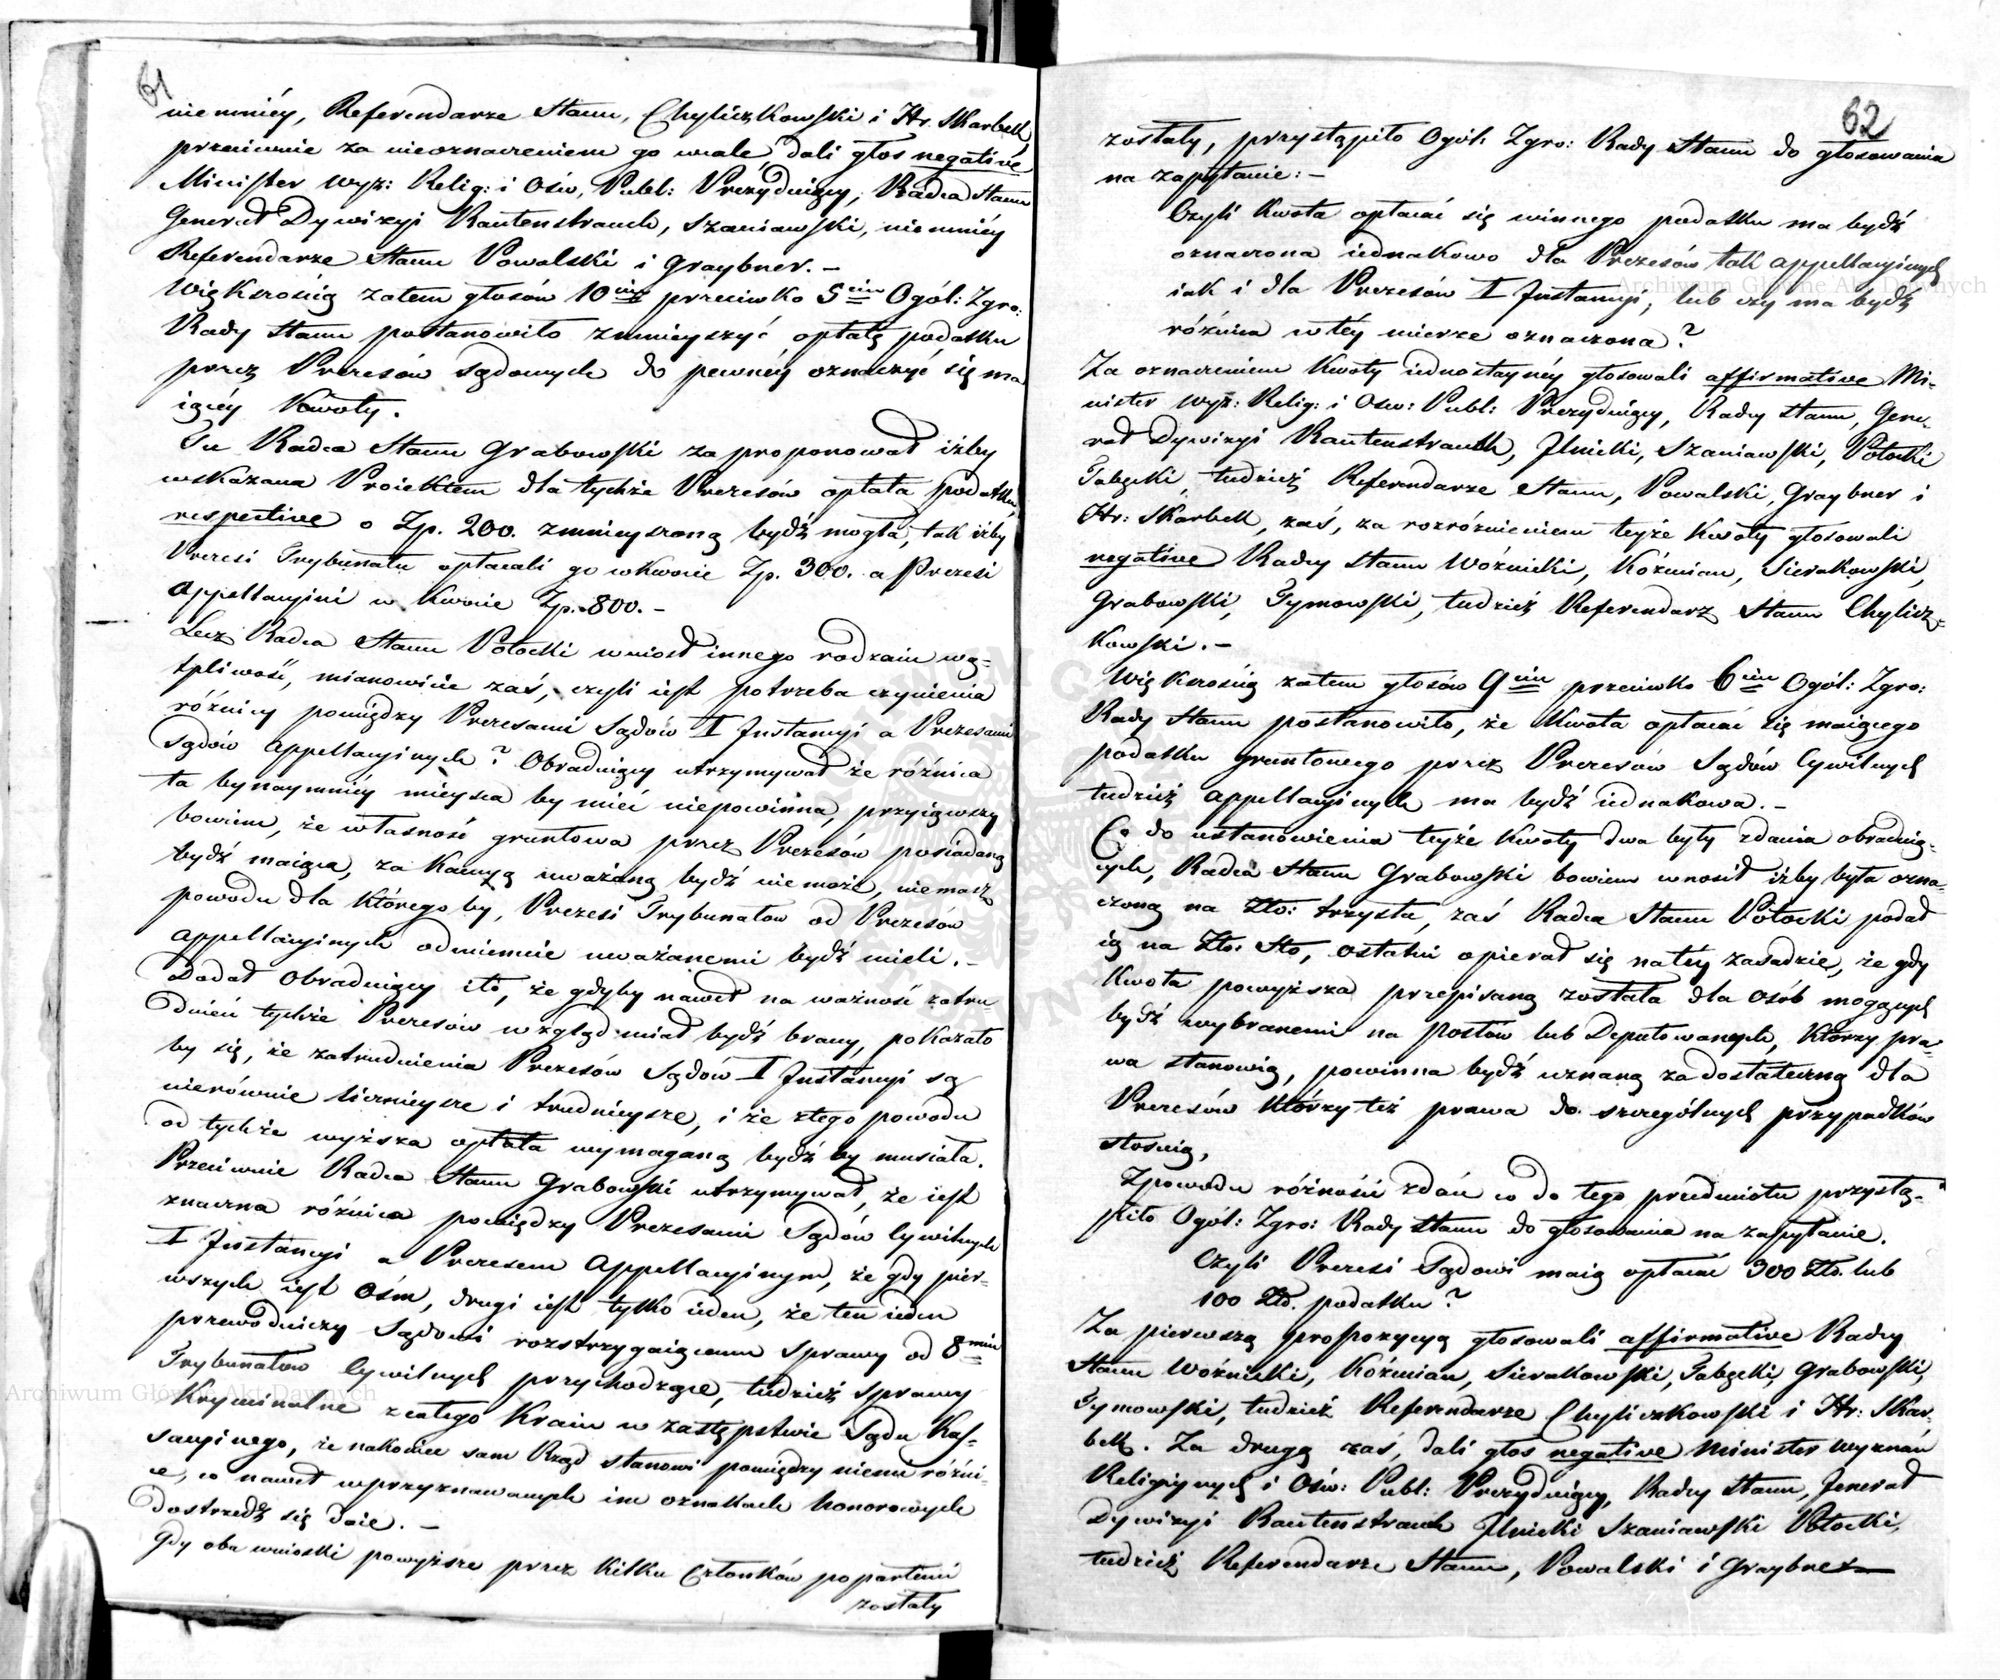 61
niemniéy, Referendarze Stanu, Chyliczkowski i Hr. Skarbek,
przeciwnie za nieoznaczeniem go wcale, dali głos negative
Minister Wyz: Relig: i Ośw. Publ: Prezyduiący, Radca Stanu
Generał Dywizyi Rautenstrauch, Szaniawski, niemniéy
Referendarze Stanu Powalski i Graybner. –
Większością zatem głosów 10ciu przeciwko 5ciu Ogól: Zgro:
Rady Stanu postanowiło zmnieyszyć opłatę podatku
przez Prezesów sądowych do pewnéy oznaczyć się ma
iącéy Kwoty.
Tu Radca Stanu Grabowski zaproponował iżby
wskazana Proiektem dla tychże Prezesów opłata podatku,
respective o Zp. 200. zmnieyszoną bydź mogła, tak iżby
Prezesi Trybunału opłacali go w kwocie Zp. 300. a Prezesi
Appellacyini w Kwocie Zp. 800. –
Lecz Radca Stanu Potocki wniosł innego rodzaiu wą=
tpliwość, mianowicie zaś, czyli iest potrzeba czynienia
różnicy pomiędzy Prezesami Sądów I Instancyi a Prezesami
Sądów Appellacyinych? Obraduiący utrzymywał że różnica
ta bynaymniéy mieysca by mieć niepowinna, przyiąwszy
bowiem, że własność gruntowa przez Prezesów posiadaną
bydź maiąca, za Kaucyą uważaną bydź nie może, nie masz
powodu dla którego by, Prezesi Trybunałow od Prezesów
Appellacyinych odmiennie uważanemi bydź mieli. –
Dodał Obraduiący i to, że gdyby nawet na ważność zatru
dnień tychże Prezesów wzgląd miał bydź brany, pokazało
by się, że zatrudnienia Prezesów Sądów I Instancyi są
nierównie licznieysze i trudnieysze, i że z tego powodu
od tychże wyższa opłata wymaganą bydź by musiała.
Przeciwnie Radca Stanu Grabowski utrzymywał, że iest
znaczna różnica pomiędzy Prezesami Sądów Cywilnych
I Instancyi a Prezesem Appellacyinym, że gdy pier=
wszych iest ośm, drugi iest tylko ieden, że ten ieden
przewodniczy Sądowi rozstrzygaiącemu Sprawy od 8miu
Trybunałow Cywilnych przychodzące, tudzież Sprawy
Kryminalne z całego Kraiu w zastępstwie Sądu Kas=
sacyinego, że nakoniec sam Rząd stanowi pomiędzy niemi różni=
cę, co nawet w przyznawanych im oznakach honorowych
dostrzedz się daie. –
Gdy oba wnioski powyższe przez kilku Członków popartemi
zostały
62
zostały, przystąpiło Ogól: Zgro: Rady Stanu do głosowania
na zapytanie: –
Czyli Kwota opłacać się winnego podatku ma bydź
oznaczona iednakowo dla Prezesów tak Appellacyinych
iak i dla Prezesów I Instancyi, lub czy ma bydź
różnica w téy mierze oznaczona?
Za oznaczeniem Kwoty iednostaynéy głosowali affirmative Mi=
nister Wyz: Relig: i Ośw: Publ: Prezyduiący, Radcy Stanu, Gene=
rał Dywizyi Rautenstrauch, Jlnicki, Szaniawski, Potocki
Tabęcki, tudzież Referendarze Stanu, Powalski, Graybner i
Hr: Skarbek, zaś, za rozróżnieniem teyże Kwoty głosowali
negative Radcy Stanu Woźnicki, Koźmian, Sierakowski,
Grabowski, Tymowski, tudzież Referendarz Stanu Chylicz=
kowski. –
Większością zatem głosów 9ciu przeciwko 6ciu Ogól: Zgro:
Rady Stanu postanowiło, że Kwota opłacać się maiącego
podatku gruntowego przez Prezesów Sądów Cywilnych
tudzież Appellacyinych ma bydź iednakowa. –
Co do ustanowienia teyże Kwoty dwa były zdania obraduią=
cych, Radca Stanu Grabowski bowiem wnosił iżby była ozna=
czoną na Złp: trzysta, zaś Radca Stanu Potocki podał
ią na Złp: Sto, ostatni opierał się na téy zasadzie, że gdy
Kwota powyższa przepisaną została dla osób mogących
bydź wybranemi na Posłów lub Deputowanych, którzy pra=
wa stanowią, powinna bydź uznaną za dostateczną dla
Prezesów którzy też prawa do szczególnych przypadków
stosuią,
Z powodu różności zdań co do tego przedmiotu przystą=
piło Ogól: Zgro: Rady Stanu do głosowania na zapytanie.
Czyli Prezesi Sądowi maią opłacać 300 Złp. lub
100 Złp. podatku?
Za pierwszą propozycyą głosowali affirmative Radcy
Stanu Woźnicki, Koźmian, Sierakowski, Tabęcki, Grabowski,
Tymowski, tudzież Referendarze Chyliczkowski i Hr: Skar=
bek. Za drugą zaś, dali głos negative Minister Wyznań
Religiynych i Ośw: Publ: Prezyduiący, Radcy Stanu, Jenerał
Dywizyi Rautenstrauch Jlnicki Szaniawski Potocki,
tudzież Referendarze Stanu, Powalski i Graybner
Archiwum Główne Akt Dawnych
Archiwum Główne Akt Dawnych